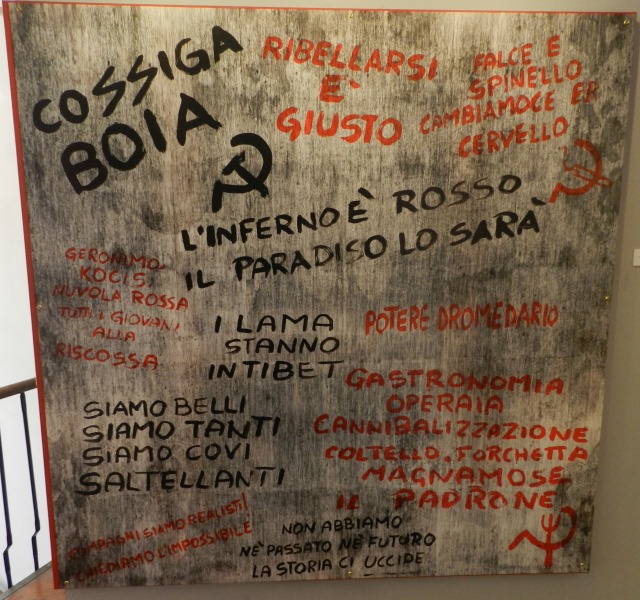 COSSIGA
BOIA
RIBELLARSI
E'
GIUSTO
FALCE E
SPINELLO
CAMBIAMOCE ER
CERVELLO
L'INFERNO È ROSSO
IL PARADISO LO SARÀ
GERONIMO
KOCIS
NUVOLA ROSSA
TUTTI I GIOVANI
ALLA
RISCOSSA
I LAMA
STANNO
IN TIBET
POTERE DROMEDARIO
GASTRONOMIA
OPERAIA
CANNIBALIZZAZIONE
COLTELLO, FORCHETTA
MAGNAMOSE
IL PADRONE
SIAMO BELLI
SIAMO TANTI
SIAMO COVI
SALTELLANTI
COMPAGNI SIAMO REALISTI
CHIEDIAMO L'IMPOSSIBILE
NON ABBIAMO
NE' PASSATO NE' FUTURO
LA STORIA CI UCCIDE